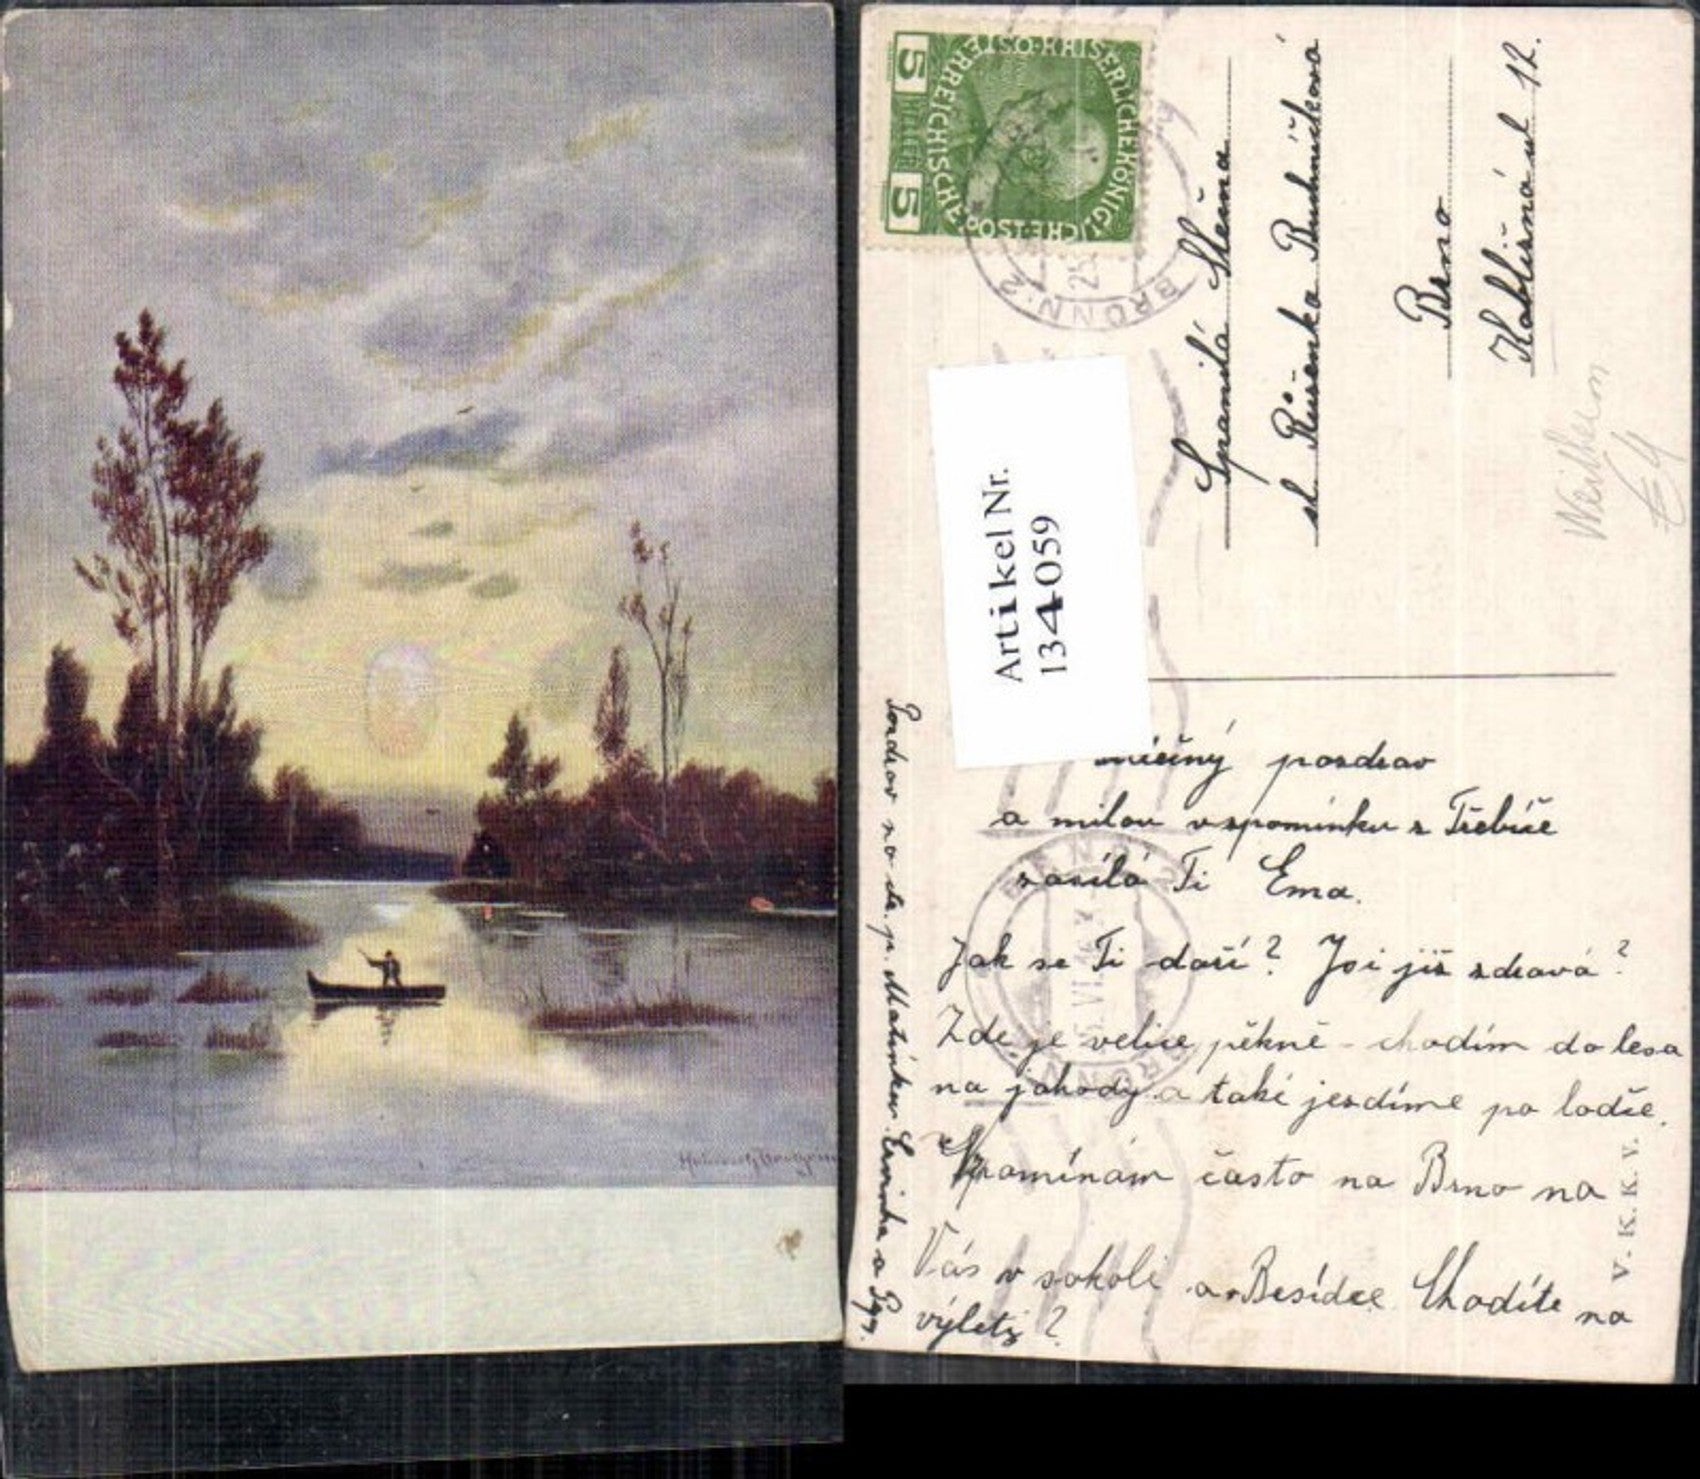 5
5
KAISERLICHE KÖNIGLICHE ÖSTERREICHISCHE POST
BRÜNN 2
Artikel Nr.
134059
Spanilá Slečna
sl. Růženka
Brno
Kobližná ul 12.
Weidheim
E4
srdečný pozdrav
a milou vzpomínku z Třebíče
zasílá Ti Ema.
Jak se Ti daří? Jsi již zdravá?
Zde je velice pěkně - chodím do lesa
na jahody a také jezdíme po lodce.
Vzpomínám často na Brno na
Vás v sokole a Besídce Chodíte na
výlety?
V. K. K. V.
Pozdrav na sl. p. Matinku Ervinka a